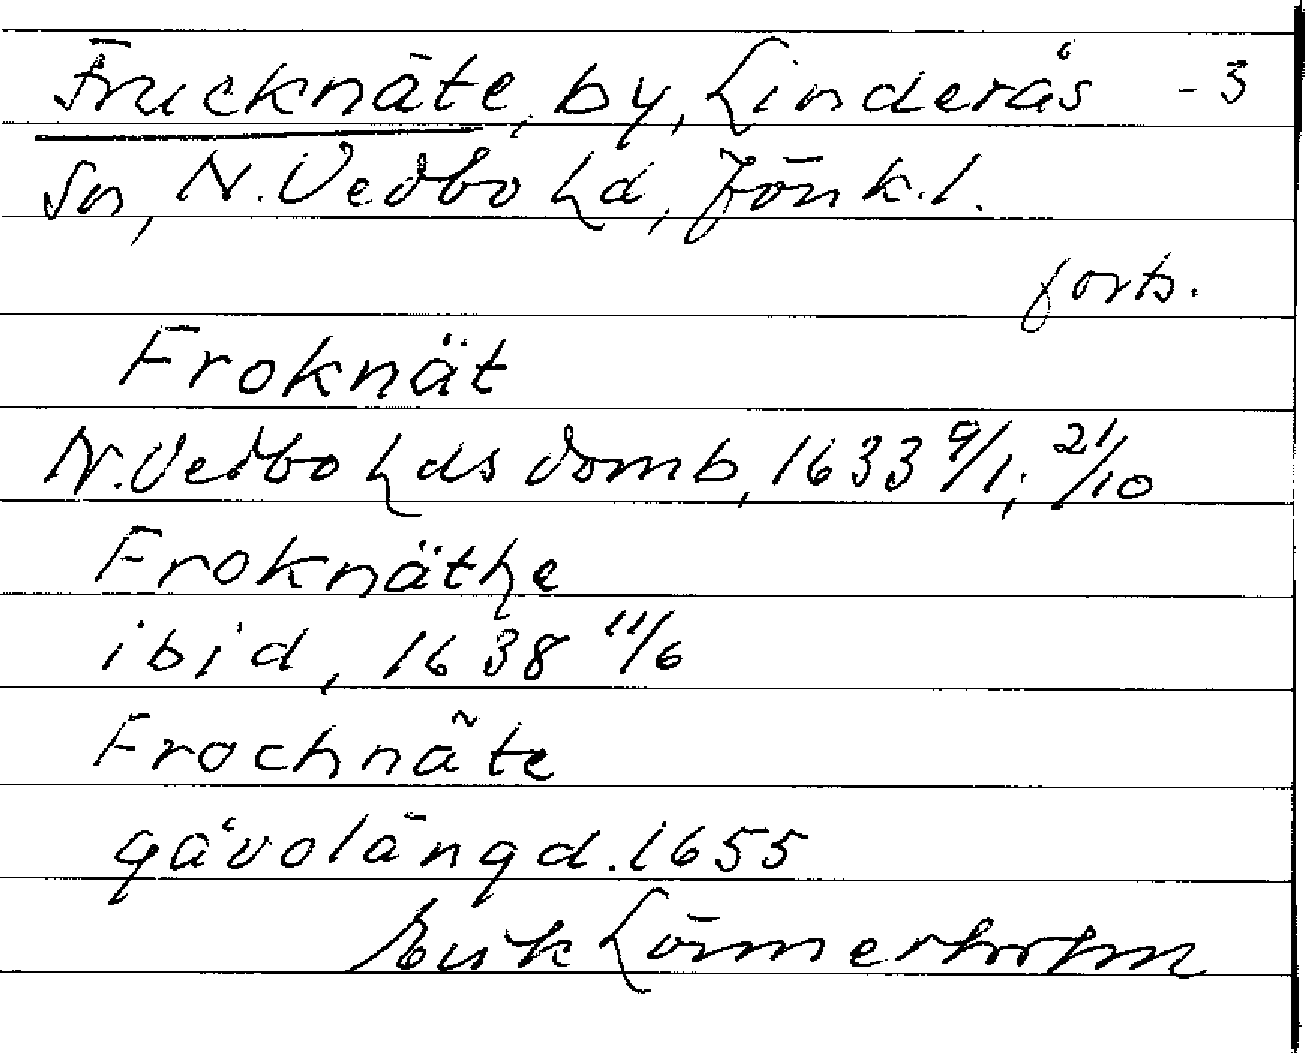 Frucknäte, by, Linderås -3
Sn, N. Vedbo Hd, Jönk. l.
forts.
Froknät
N. Vedbo Hds domb, 1633 9/1; 21/10
Froknäthe
ibid, 1638 11/6
Frochnäte
gåvolängd. 1655
Erik Lönnerholm